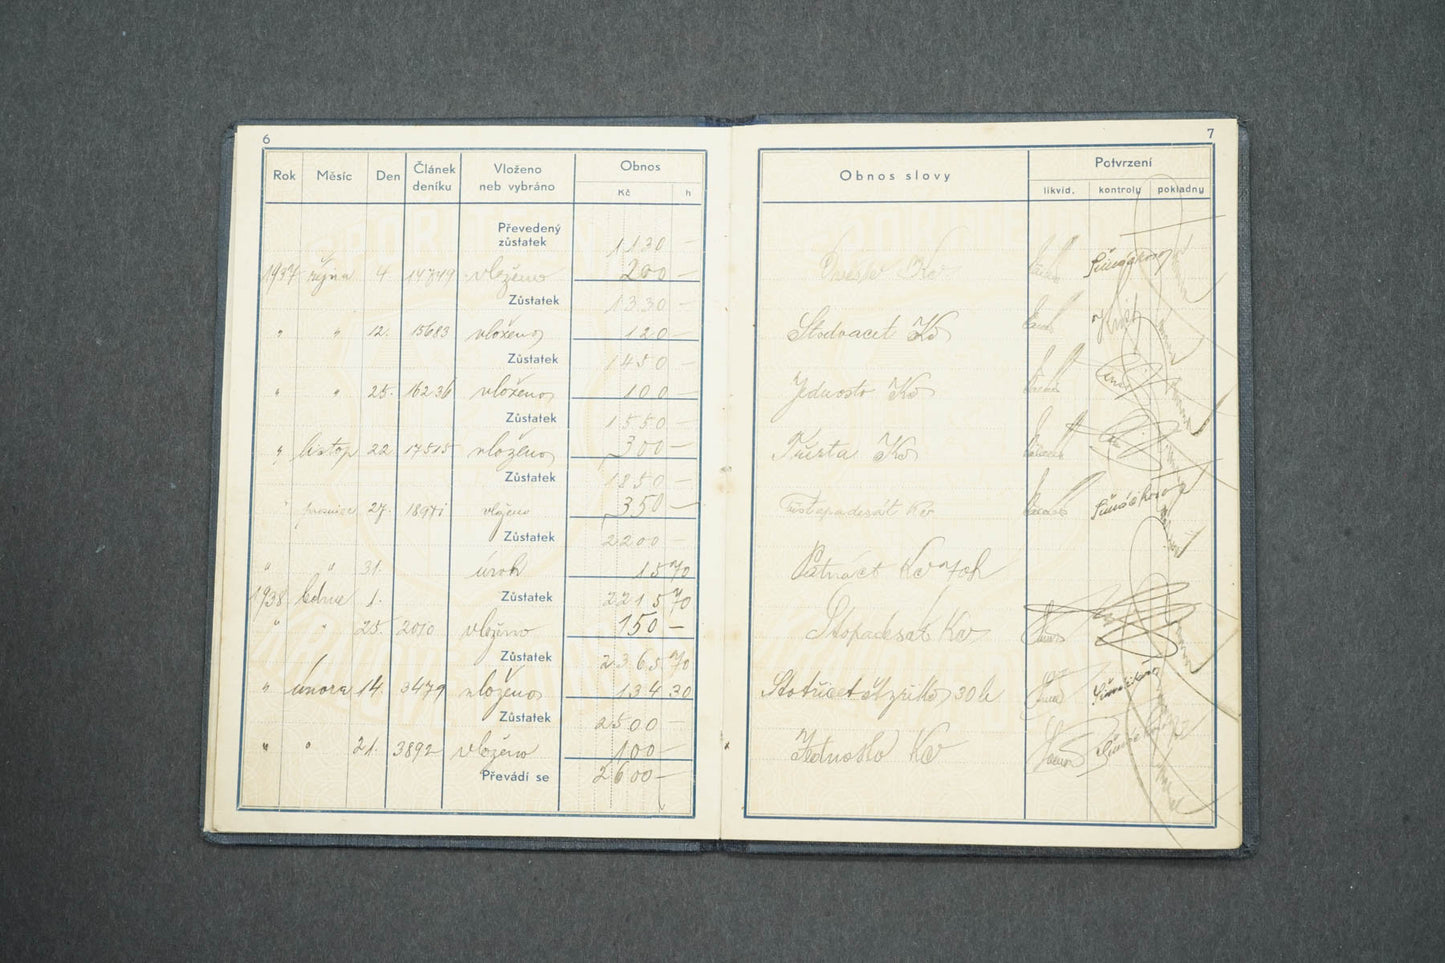 6
Rok Měsíc Den Článek deníku Vloženo neb vybráno Obnos Kč h
Převedený zůstatek 1130 —
1937 října 4. 14749 vloženo 200 —
Zůstatek 1330 —
" " 12. 15683 vloženo 120 —
Zůstatek 1450 —
" " 25. 16236 vloženo 100 —
Zůstatek 1550 —
" listop 22 17515 vloženo 300 —
Zůstatek 1850 —
" prosince 27. 18971 vloženo 350 —
Zůstatek 2200 —
" " 31. úrok 15 70
1938 ledna 1. Zůstatek 2215 70
" " 25. 2010 vloženo 150 —
Zůstatek 2365 70
" února 14. 3479 vloženo 134 30
Zůstatek 2500 —
" " 21. 3892 vloženo 100 —
Převádí se 2600 —
7
Obnos slovy Potvrzení
likvid. kontroly pokladny
Dvěstě Kč
Stodvacet Kč
Jednosto Kč
Třista Kč
Třistapadesát Kč
Patnáct Kč 70h
Stopadesát Kč
Stotřicetčtyři Kč 30 h
Jednosto Kč